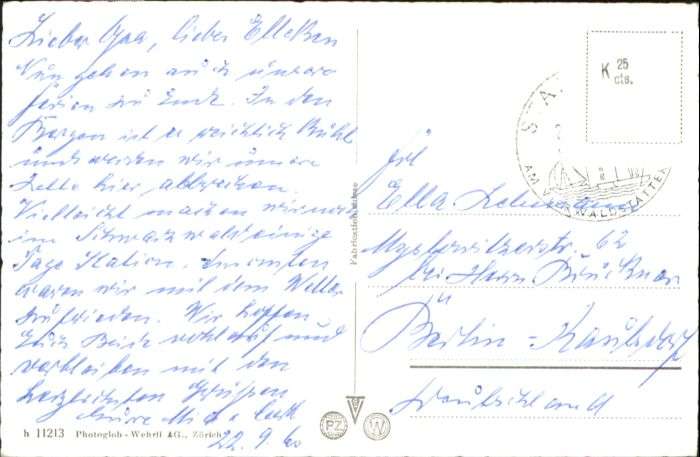 Lieber Opa, lieber Elleßen
Nun gehen auch unsere
Ferien zu Ende. In den
Bergen ist es reichlich kühl
und werden wir unsere
Zelte hier abbrechen.
Vielleicht machen wir noch
im Schwarzwald einige
Tage Station. Ansonsten
waren wir mit dem Wetter
zufrieden. Wir hoffen
Euch Beide wohlauf und
verbleiben mit den
herzlichsten Grüßen
Eure
22.9.60
h 11213 Photoglob-Wehrli AG., Zürich
PZ W
K 25
cts.
STA
AM VIERWALDSTÄTTER
Frl
Ella
str. 62
bei Herrn Brückner
Berlin-Kaulsdorf
Deutschland